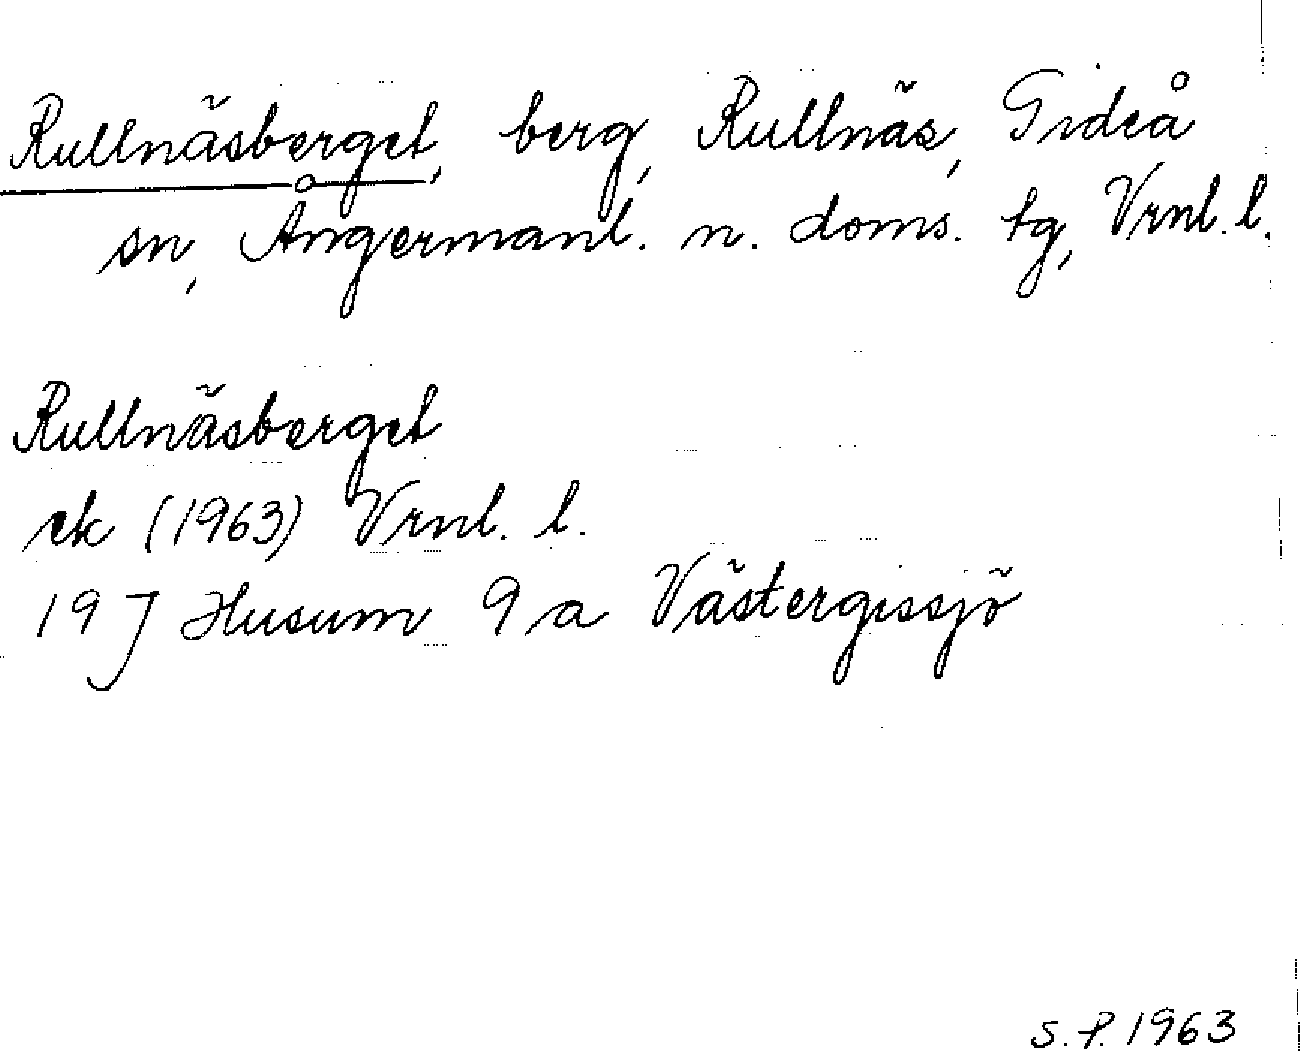 Rullnäsberget, berg, Rullnäs, Gideå
sn, Ångermanl. n. doms. tg, Vrnl. l.
Rullnäsberget
ek (1963) Vrnl. l.
19 J Husum 9 a Västergissjö
S.P. 1963